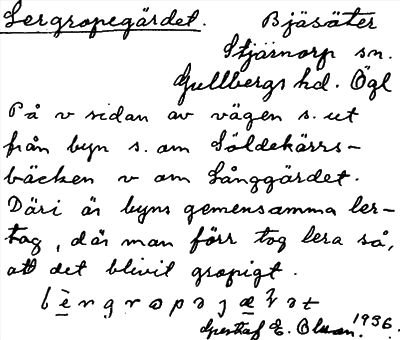 Lergropegärdet. Bjäsäter
Stjärnorp sn.
Gullbergs hd. Ögl
På v sidan av vägen s. ut
från byn s. om Söldekärrs-
bäcken v om Långgärdet.
Däri är byns gemensamma ler-
tag, där man förr tog lera så,
att det blivit gropigt.
Gusthaf E. Olsson. 1936.